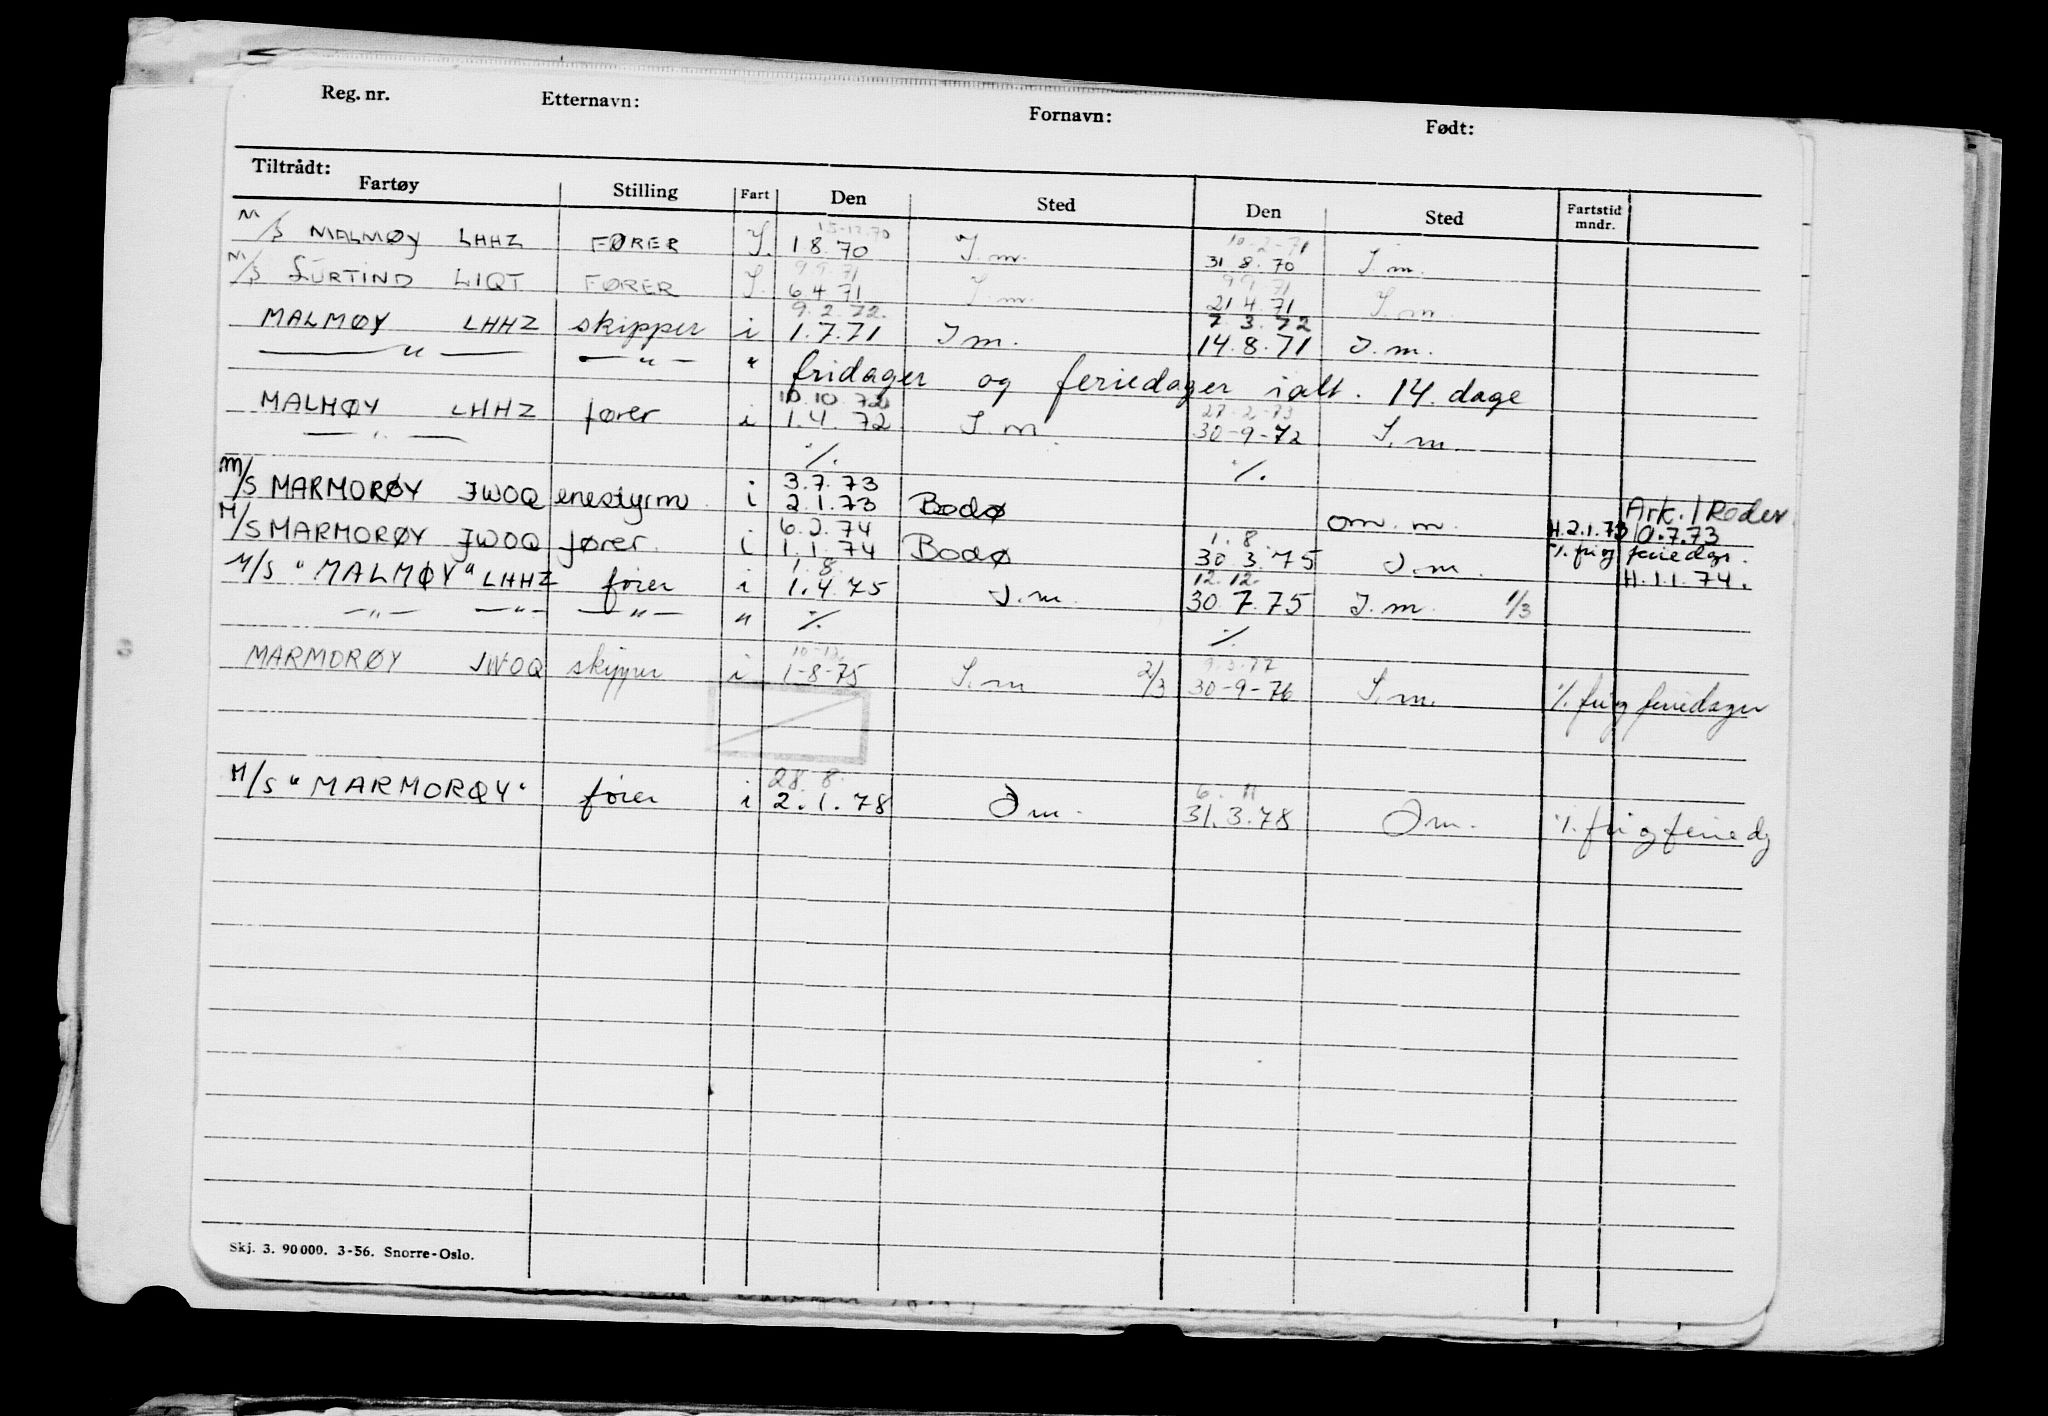 Reg. nr. Etternavn: Fornavn: Født:
Tiltrådt:
Fartøy Stilling Fart Den Sted Den Sted Fartstid mndr.
15-12.70 10-2-71
M/S MALMØY LHHZ FØRER I. 1.8.70 I.m. 31 8.70 I.m.
9.9.71 9.9.71
M/S SURTIND LIQT FØRER I. 6.4.71 I.m. 21 4.71 I.m.
9.2.72. 7.3.72
MALMØY LHHZ skipper i 1.7.71 I m. 14.8.71 I.m.
—"— —"— " fridager og feriedager ialt. 14. dage
10.10.72 27-2-73
MALMØY LHHZ fører i 1.4.72 I.m. 30-9-72 I.m.
—"— ./. ./.
3.7.73
M/S MARMORØY JWOQ enestyrm. i 2.1.73 Bodø om. m. Ark./Reder.
6.2.74 1.8. H.2.1.73 0.7.73
M/S MARMORØY JWOQ fører. i 1.1.74 Bodø 30.3.75 I.m. ./. fri og feriedgr.
1.8. 12.12. H.1.1.74.
M/S "MALMØY" LHHZ fører i 1.4.75 I.m. 30.7.75 I.m. 1/3
—"— —"— —"— " ./. ./.
10-12. 9.3.77
MARMORØY JWOQ skipper i 1-8-75 I.m 2/3 30-9-76 I.m. ./. fri og feriedager
28.8. 6.11
M/S "MARMORØY" fører i 2.1.78 I m. 31.3.78 I m. ./. fri og feriedg
Skj. 3. 90 000. 3-56. Snorre-Oslo.